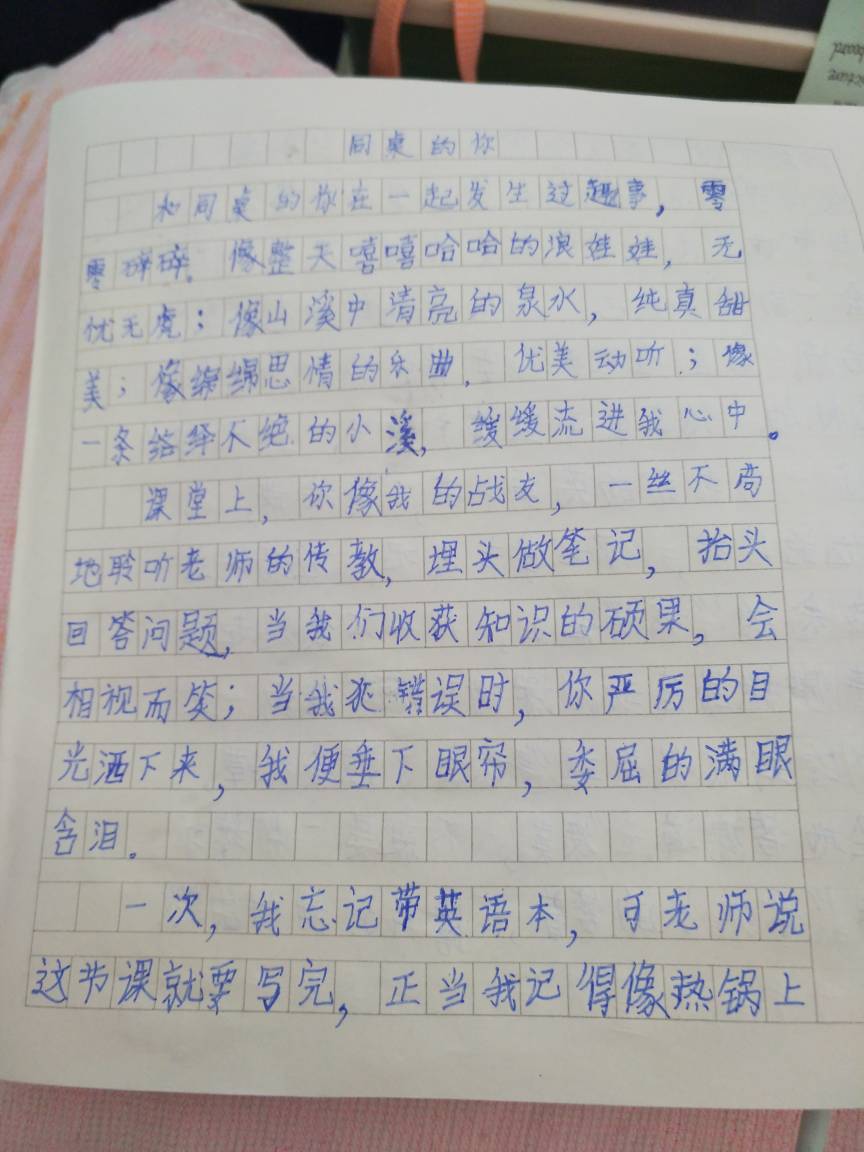 同桌的你
和同桌的你在一起发生过趣事，零
零碎碎。像整天嘻嘻哈哈的浪娃娃，无
忧无虑；像山溪中清亮的泉水，纯真甜
美；像绵绵思情的乐曲，优美动听；像
一条络绎不绝的小溪，缓缓流进我心中。
课堂上，你像我的战友，一丝不苟
地聆听老师的传教，埋头做笔记，抬头
回答问题，当我们收获知识的硕果，会
相视而笑；当我犯错误时，你严厉的目
光洒下来，我便垂下眼帘，委屈的满眼
含泪。
一次，我忘记带英语本，可老师说
这节课就要写完，正当我记得像热锅上